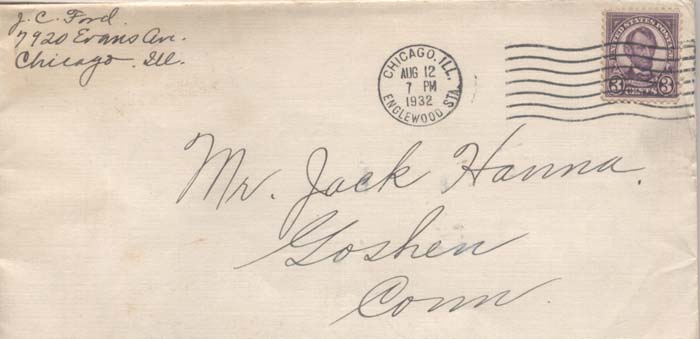 J. C. Ford.
7920 Evans Ave.
Chicago. Ill.
CHICAGO, ILL.
AUG 12
7 PM
1932
ENGLEWOOD STA.
UNITED STATES POSTAGE
3 CENTS 3
Mr. Jack Hanna.
Goshen
Conn.